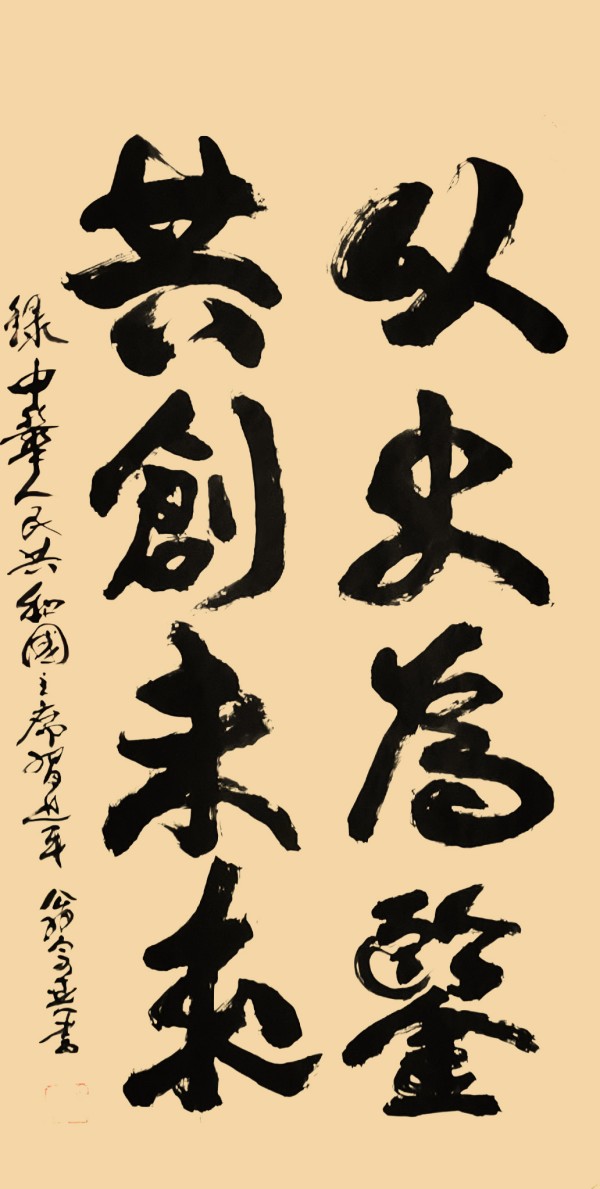 以史為鑒
共創未來
錄中華人民共和國主席習近平 翁書